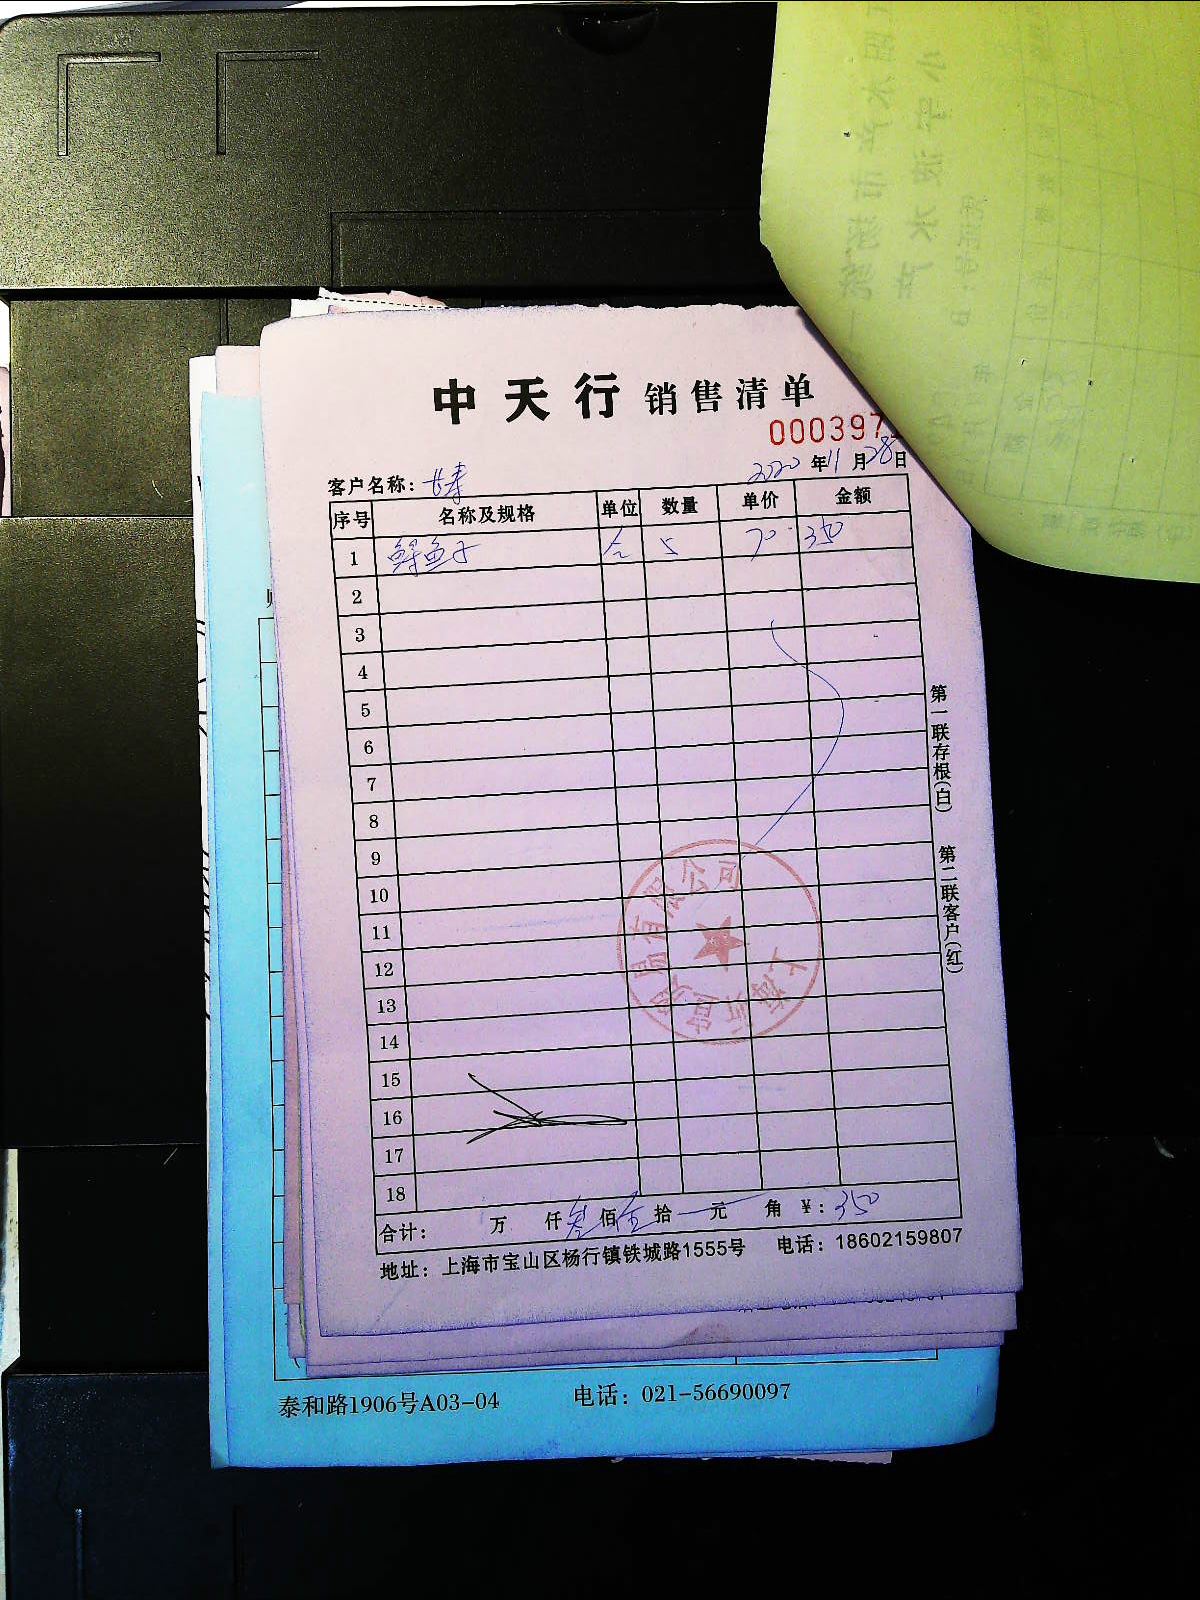 中天行 销售清单
000397
客户名称： 2020年11月28日
序号 名称及规格 单位 数量 单价 金额
1 鲟鱼子 盒 5 70 350
2
3
4
5
6
7
8
9
10
11
12
13
14
15
16
17
18
合计： 万 仟叁佰伍拾 元 角 ￥：350
地址：上海市宝山区杨行镇铁城路1555号 电话：18602159807
第一联存根(白)
第二联客户(红)
贸易有限公司
泰和路1906号A03-04 电话：021-56690097